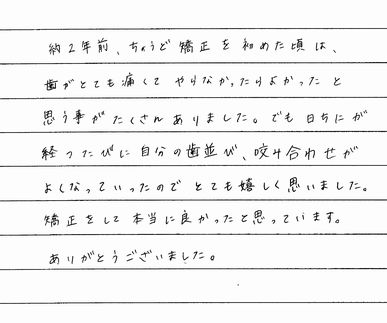 約2年前、ちょうど矯正を初めた頃は、
歯がとても痛くてやりなかったりよかったと
思う事がたくさんありました。でも日ちにが
経つたびに自分の歯並び、咬み合わせが
よくなっていったのでとても嬉しく思いました。
矯正をして本当に良かったと思っています。
ありがとうございました。